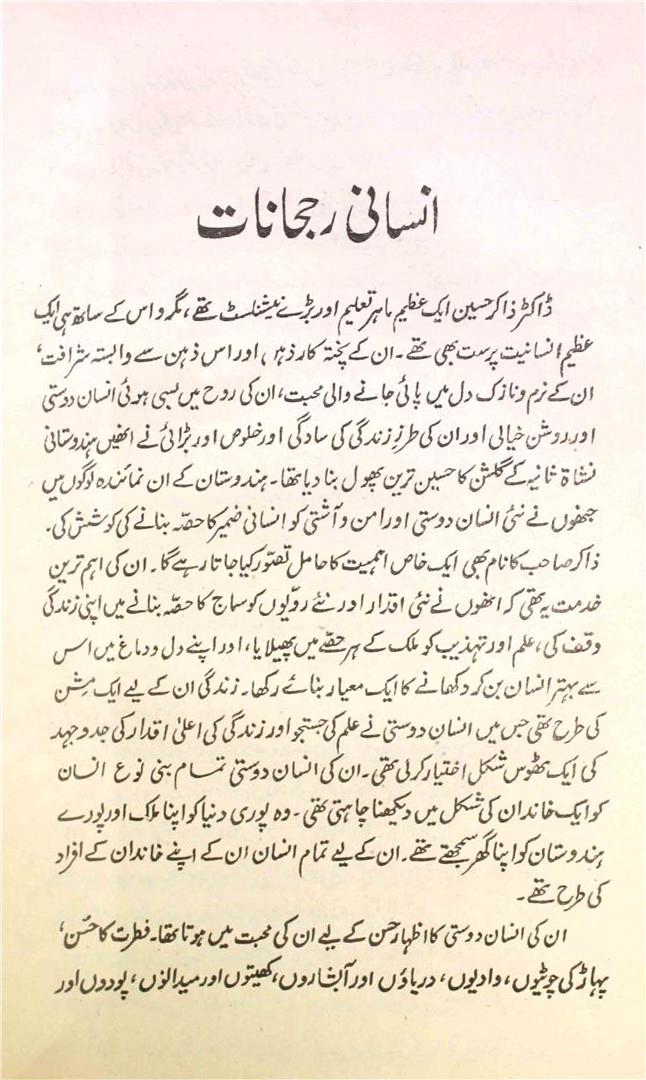 انسانی رجحانات
ڈاکٹر ذاکر حسین ایک عظیم ماہر تعلیم اور بڑے نیشنلسٹ تھے، مگر وہ اس کے ساتھ ہی ایک
عظیم انسانیت پرست بھی تھے۔ ان کے پختہ کار ذہن اور اس ذہن سے وابستہ شرافت،
ان کے نرم و نازک دل میں پائی جانے والی محبت، ان کی روح میں بسی ہوئی انسان دوستی
اور روشن خیالی اور ان کی طرزِ زندگی کی سادگی اور خلوص اور بڑائی نے انھیں ہندوستانی
نشاۃ ثانیہ کے گلشن کا حسین ترین پھول بنا دیا تھا۔ ہندوستان کے ان نمائندہ لوگوں میں
جنھوں نے نئی انسان دوستی اور امن و آشتی کو انسانی ضمیر کا حصّہ بنانے کی کوشش کی۔
ذاکر صاحب کا نام بھی ایک خاص اہمیت کا حامل تصوّر کیا جاتا رہے گا۔ ان کی اہم ترین
خدمت یہ تھی کہ انھوں نے نئی اقدار اور نئے رویّوں کو سماج کا حصّہ بنانے میں اپنی زندگی
وقف کی، علم اور تہذیب کو ملک کے ہر حصّے میں پھیلایا، اور اپنے دل و دماغ میں اس
سے بہتر انسان بن کر دکھانے کا ایک معیار بنائے رکھا۔ زندگی ان کے لیے ایک مِشن
کی طرح تھی جس میں انسان دوستی نے علم کی جستجو اور زندگی کی اعلیٰ اقدار کی جدوجہد
کی ایک ٹھوس شکل اختیار کر لی تھی۔ ان کی انسان دوستی تمام بنی نوع انسان
کو ایک خاندان کی شکل میں دیکھنا چاہتی تھی۔ وہ پوری دنیا کو اپنا ملک اور پورے
ہندوستان کو اپنا گھر سمجھتے تھے۔ ان کے لیے تمام انسان ان کے اپنے خاندان کے افراد
کی طرح تھے۔
ان کی انسان دوستی کا اظہار حسن کے لیے ان کی محبت میں ہوتا تھا۔ فطرت کا حُسن،
پہاڑ کی چوٹیوں، وادیوں، دریاؤں اور آبشاروں، کھیتوں اور میدانوں، پودوں اور